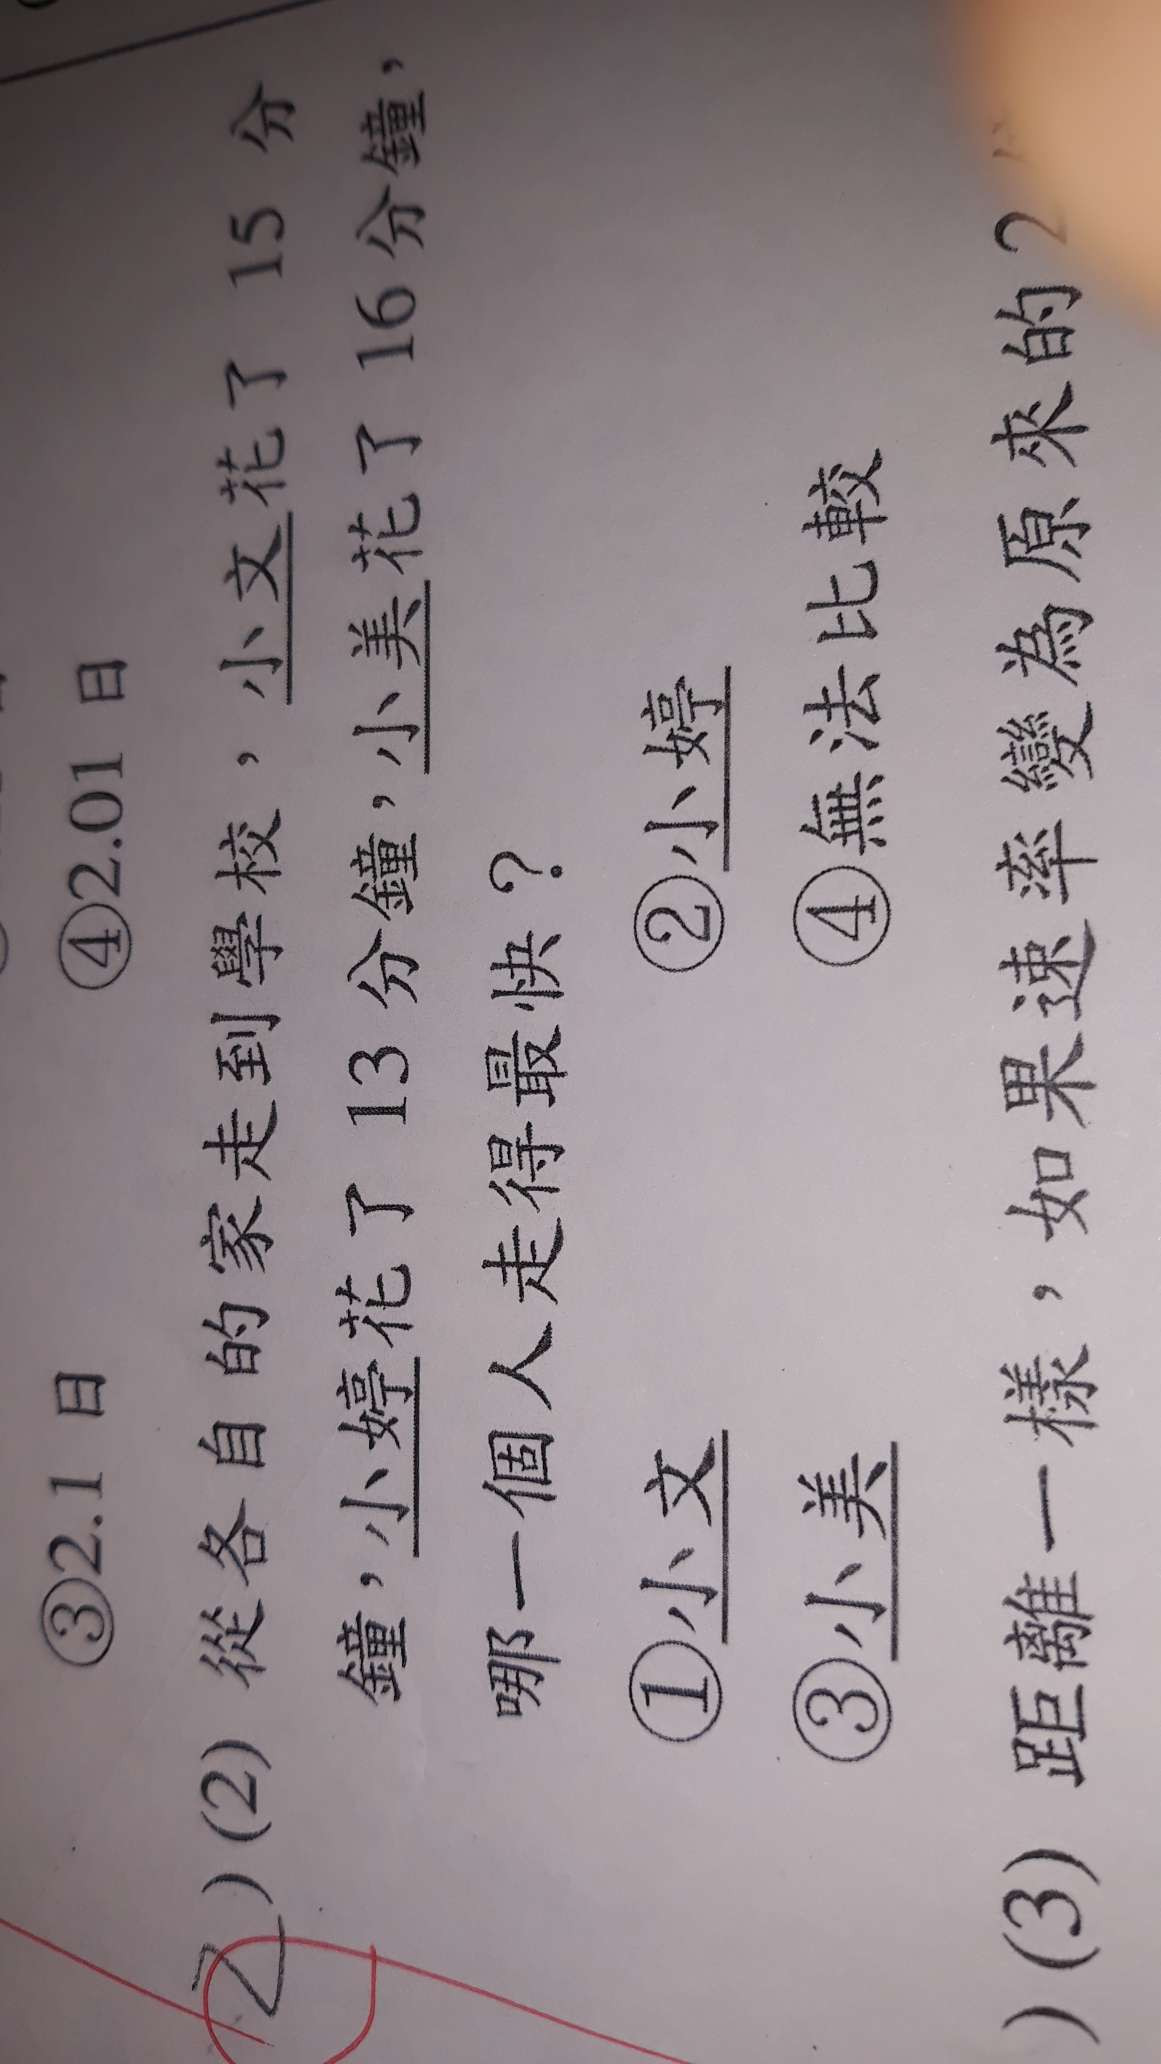 ③2.1 日 ④2.01 日
2 ) (2) 從各自的家走到學校，小文花了 15 分
鐘，小婷花了 13 分鐘，小美花了 16 分鐘，
哪一個人走得最快？
①小文 ②小婷
③小美 ④無法比較
) (3) 距離一樣，如果速率變為原來的 2